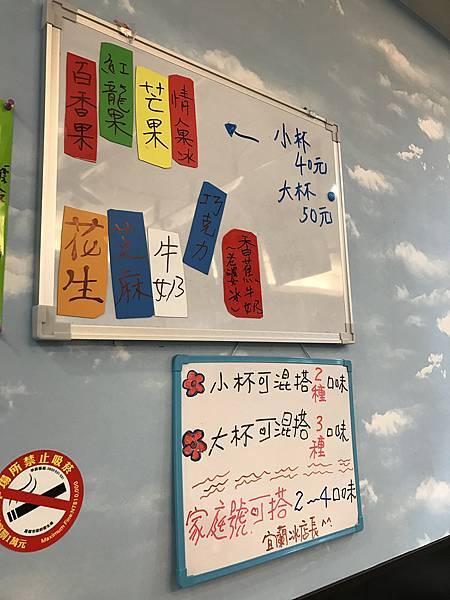 百香果
紅龍果
芒果
情人果冰
小杯
40元
大杯
50元
花生
芝麻
牛奶
巧克力
香蕉牛奶
(老婆冰)
小杯可混搭2種口味
大杯可混搭3種口味
家庭號可搭2~4口味
宜蘭冰店長^^
場所禁止吸菸
Maximum Fine NT$10,000